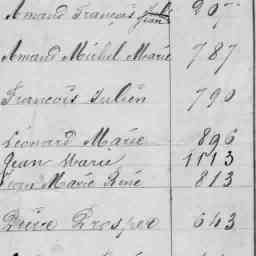 Amand François Jean 207
Amand Michel Marie 787
François Julien 790
Léonard Marie 896
Jean Marie 1113
Jean Marie René 813
Prosper 643